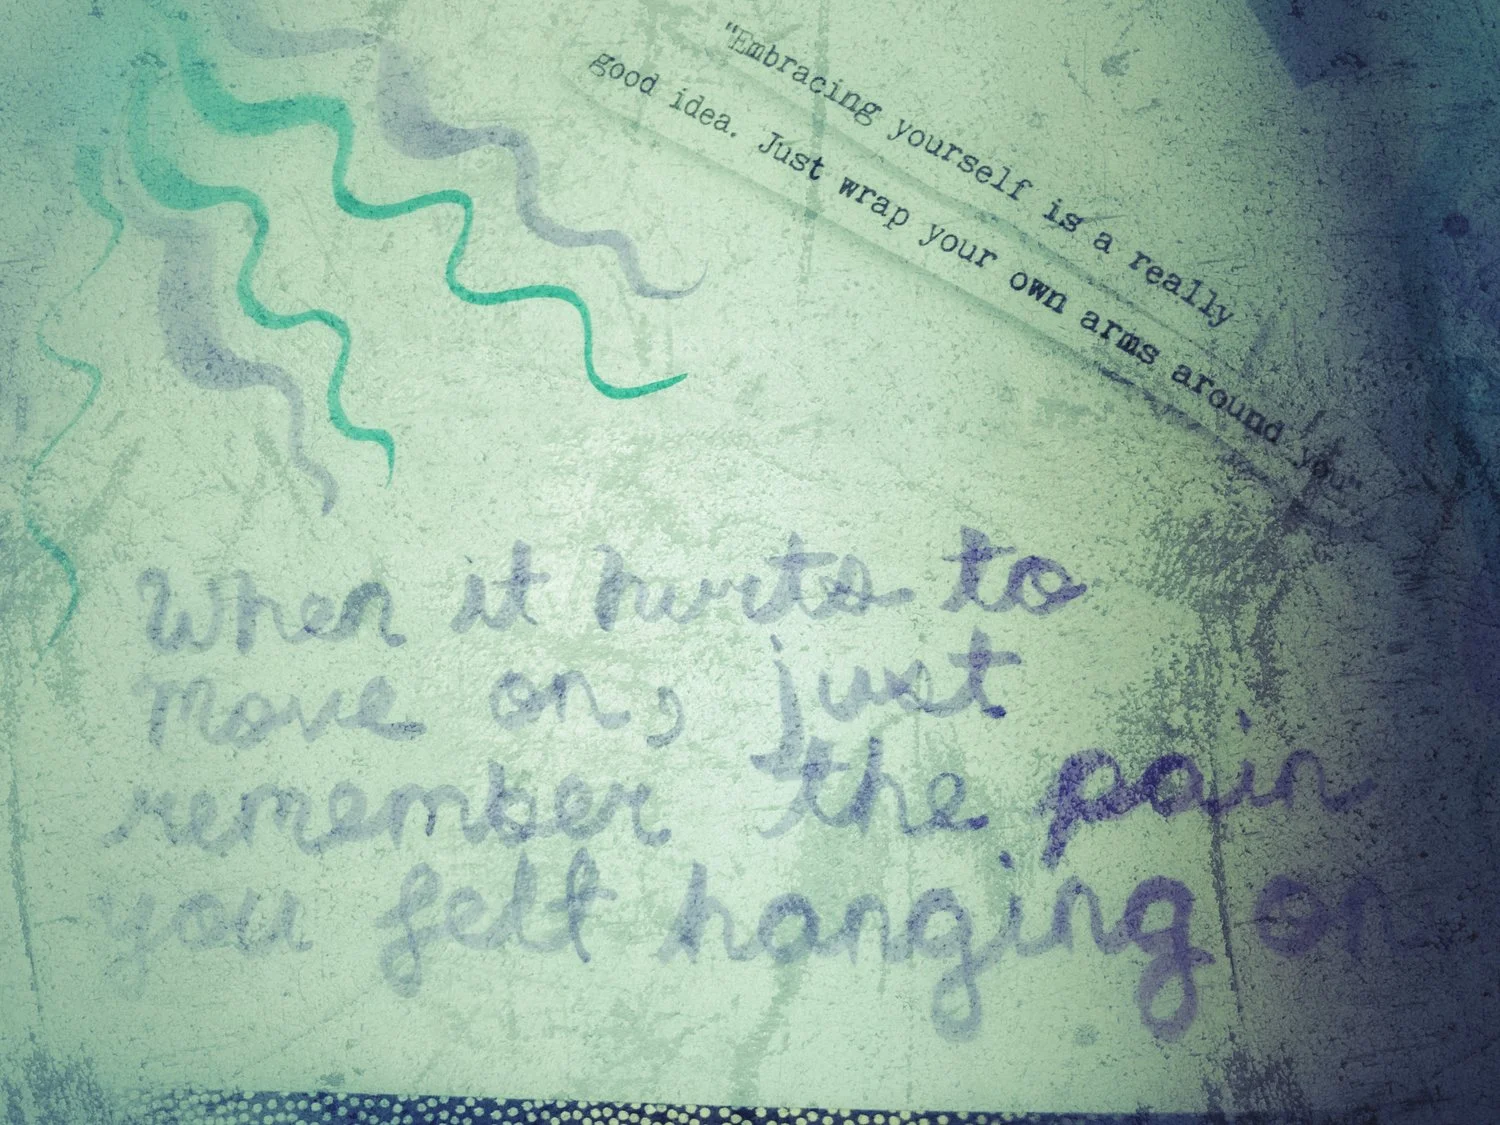 "Embracing yourself is a really
good idea. Just wrap your own arms around you"
When it hurts to
move on, just
remember the pain
you felt hanging on